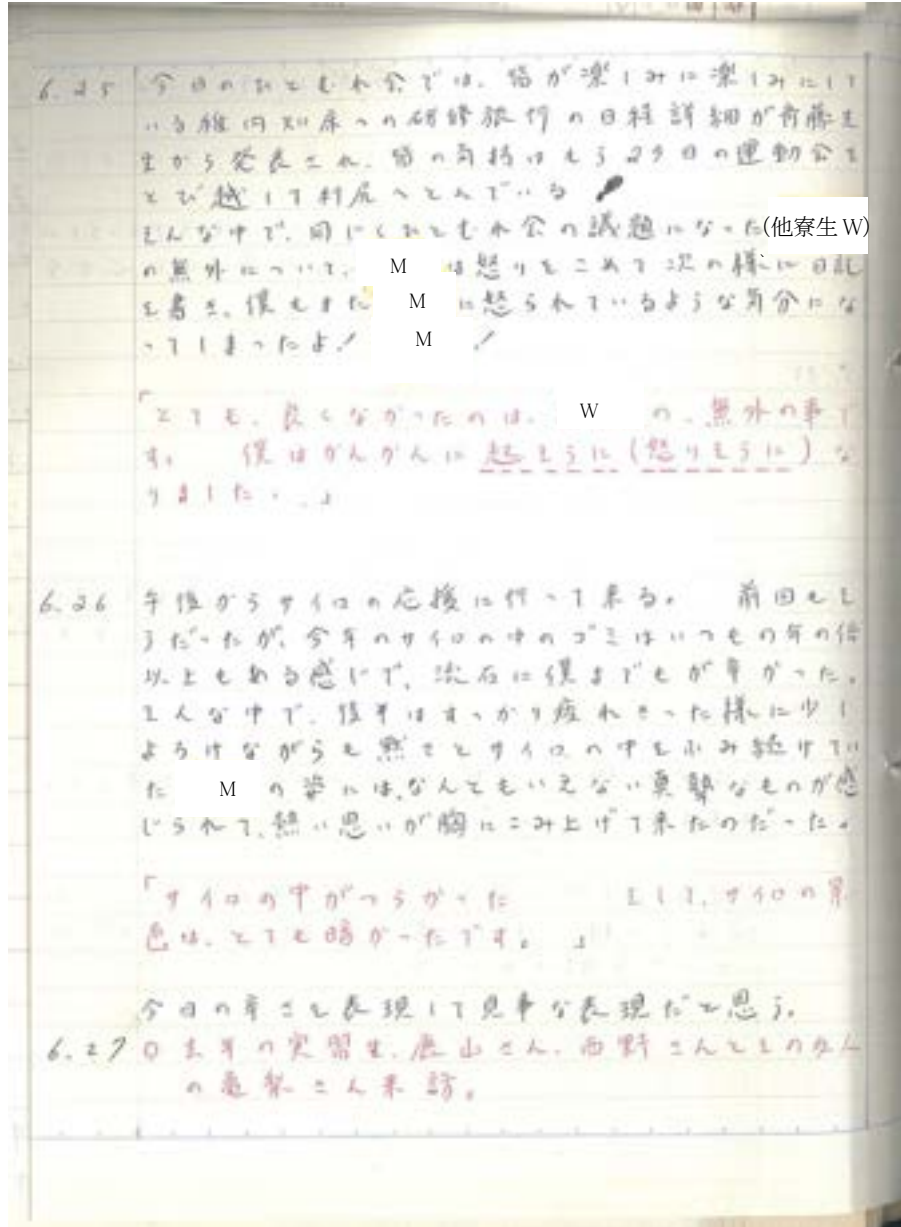 6.25 今日のおともれ会では、皆が楽しみに楽しみにして
いる稚内礼尻への研修旅行の日程詳細が斉藤先
生から発表され、皆の気持はもう29日の運動会を
とび越して利尻へとんでいる
そんな中で、同じくおともれ会の議題になった(他寮生W)
の無外について、Mは怒りをこめて次の様に日記
を書き、僕もまたMに怒られているような気分にな
ってしまったよ! M!
「とても、良くなかったのは、Wの、無外の事で
す。 僕はがんがんに起そうに(怒りそうに)な
りました。」
6.26 午後からサイロの応援に行って来る。 前回もそ
うだったが、今年のサイロの中のゴミはいつもの年の倍
以上もある感じで、流石に僕までもが辛かった。
そんな中で、後半はすっかり疲れきった様に少し
よろけながらも黙々とサイロの中をふみ続けてい
たMの姿には、なんともいえない真摯なものが感
じられて、熱い思いが胸にこみ上げて来たのだった。
「サイロの中がつらかった そして、サイロの景
色は、とても暗かったです。」
今日の辛さを表現して見事な表現だと思う。
6.27 ○去年の実習生、 山さん、西野さんとその友人
の さん来訪。